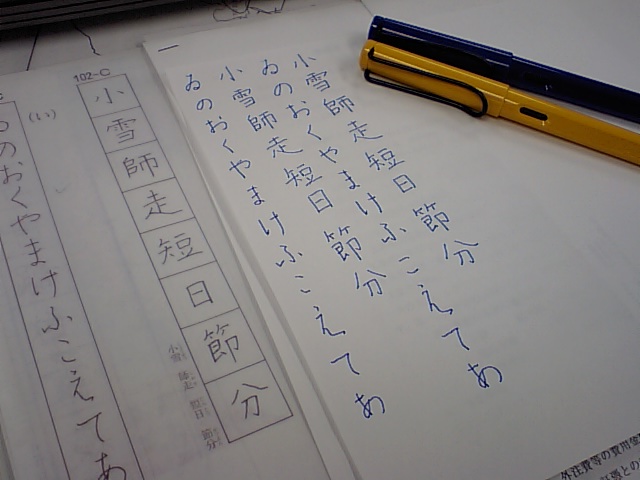 小雪師走短日節分
ゐのおくやまけふこえてあ
小雪師走短日節分
ゐのおくやまけふこえてあ
102-C
小雪師走短日節分
小雪 師走 短日 節分
(い)
ゐのおくやまけふこえてあ
外注費等の費用